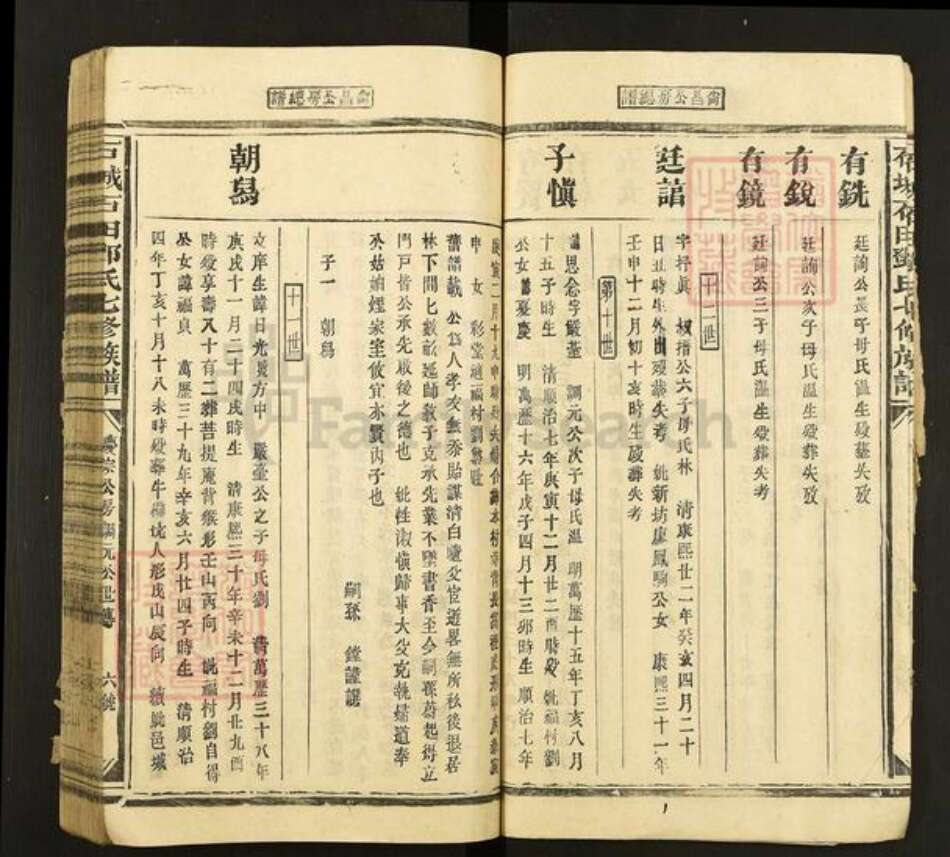 尙昌公房總譜
有銑
廷詢公長子母氏溫生歿葬失攷
有銳
廷詢公次子母氏溫生歿葬失攷
有鏡
廷詢公三子母氏溫生歿葬失考
十二世
廷諳
字抒眞 公六子母氏林 清康熙廿二年癸亥四月二十
日丑時生外出歿葬失考 妣新坊廖鳳駒公女 康熙三十一年
壬申十二月初十亥時生歿葬失考
第十世
子愼
諱思忿字嚴臺 調元公次子母氏溫 明萬歷十五年丁亥八月
十五子時生 清順治七年庚寅十二月廿二酉時歿 妣福村劉
公女諱憂慶 明萬歷十六年戊子四月十三卯時生 順治七年
尙昌公房總譜
申 女 彩堂適福村劉
舊譜載 公爲人孝友無忝貽謀清白曉父宦遊畧無所私後退居
林下開七數畝延師敎子克承先業不墜書香至今嗣孫蔚起得立
門戸皆公承先啟後之德也 妣性淑愼歸事大父克執婦道奉
公姑姻娌家室攸宜亦賢內子也
嗣孫 鏜謹譔
子一 朝舄
十一世
朝舄
文庠生諱日光號方中 嚴臺公之子母氏劉 萬歷三十八年
庚戌十一月二十四辰時生 清康熙三十年辛未十二月廿九酉
時歿享壽八十有二葬菩提庵背猴形壬山丙向 妣福村劉自得
公女諱福貞 萬歷三十九年辛亥六月廿四子時生 清順治
四年丁亥十月十八未時歿葬牛欄坑人形戌山辰向 繼妣邑城
石城石田鄧氏七修族譜
慶宗公房調元公世傳
六號
石城石田鄧氏七修族譜
FamilySearch